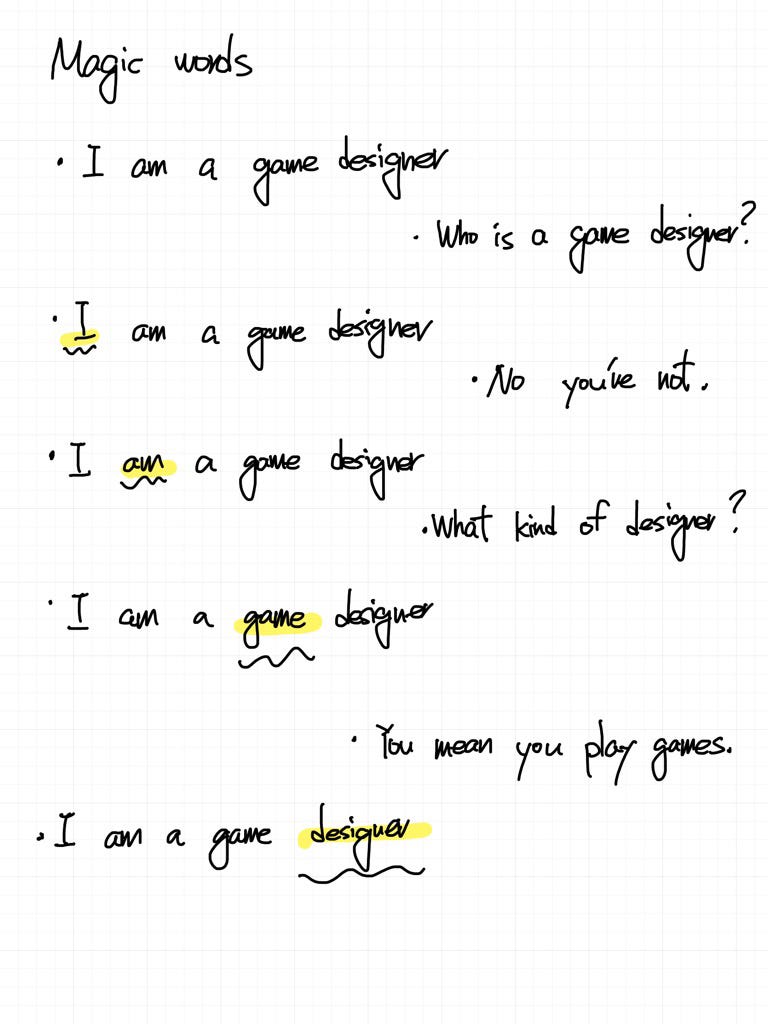 Magic words
· I am a game designer
· Who is a game designer?
· I am a game designer
· No you've not.
· I am a game designer
· What kind of designer?
· I am a game designer
· You mean you play games.
· I am a game designer